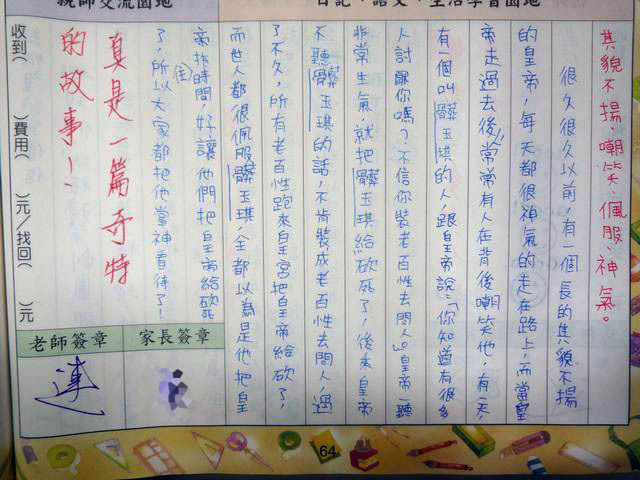 親師交流園地
日記、語文、生活學習園地
其貌不揚、嘲笑、佩服、神氣。
很久很久以前,有一個長的其貌不揚
的皇帝,每天都很神氣的走在路上,而當皇
帝走過去後,常常有人在背後嘲笑他,有一天
有一個叫髒玉琪的人,跟皇帝說:「你知道有很多
人討厭你嗎?不信你裝老百性去問人」。皇帝一聽
非常生氣,就把髒玉琪給砍死了,後來皇帝
不聽髒玉琪的話,不肯裝成老百性去問人,過
了不久,所有老百性跑來皇宮把皇帝給砍了,
而世人都很佩服髒玉琪,全都以為是他把皇
帝拖住時間,好讓他們把皇帝給砍死
了,所以大家都把他當神看待了!
真是一篇奇特
的故事!
收到( )費用( )元/找回( )元
家長簽章
老師簽章
連
64